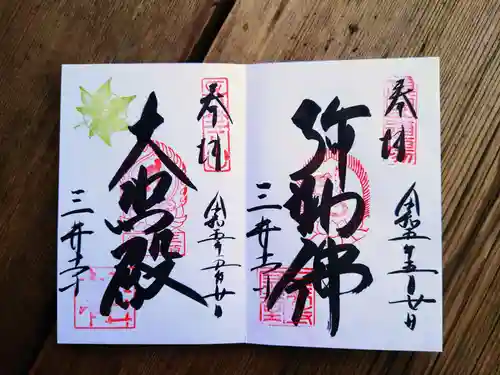 奉拝
弥勒佛
令和五年五月廿日
三井寺
奉拝
大悲殿
令和五年五月廿日
三井寺